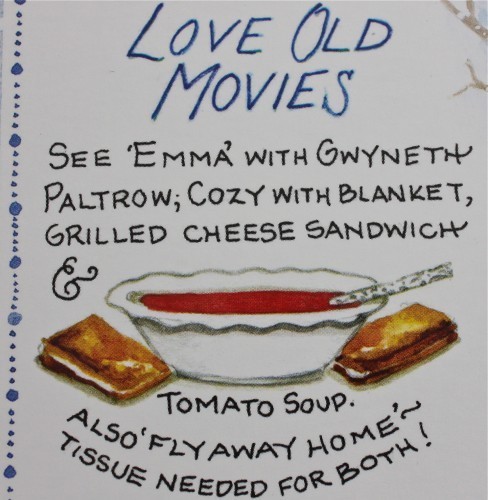 LOVE OLD
MOVIES
SEE 'EMMA' WITH GWYNETH
PALTROW; COZY WITH BLANKET,
GRILLED CHEESE SANDWICH
&
TOMATO SOUP.
ALSO 'FLY AWAY HOME' ~
TISSUE NEEDED FOR BOTH!